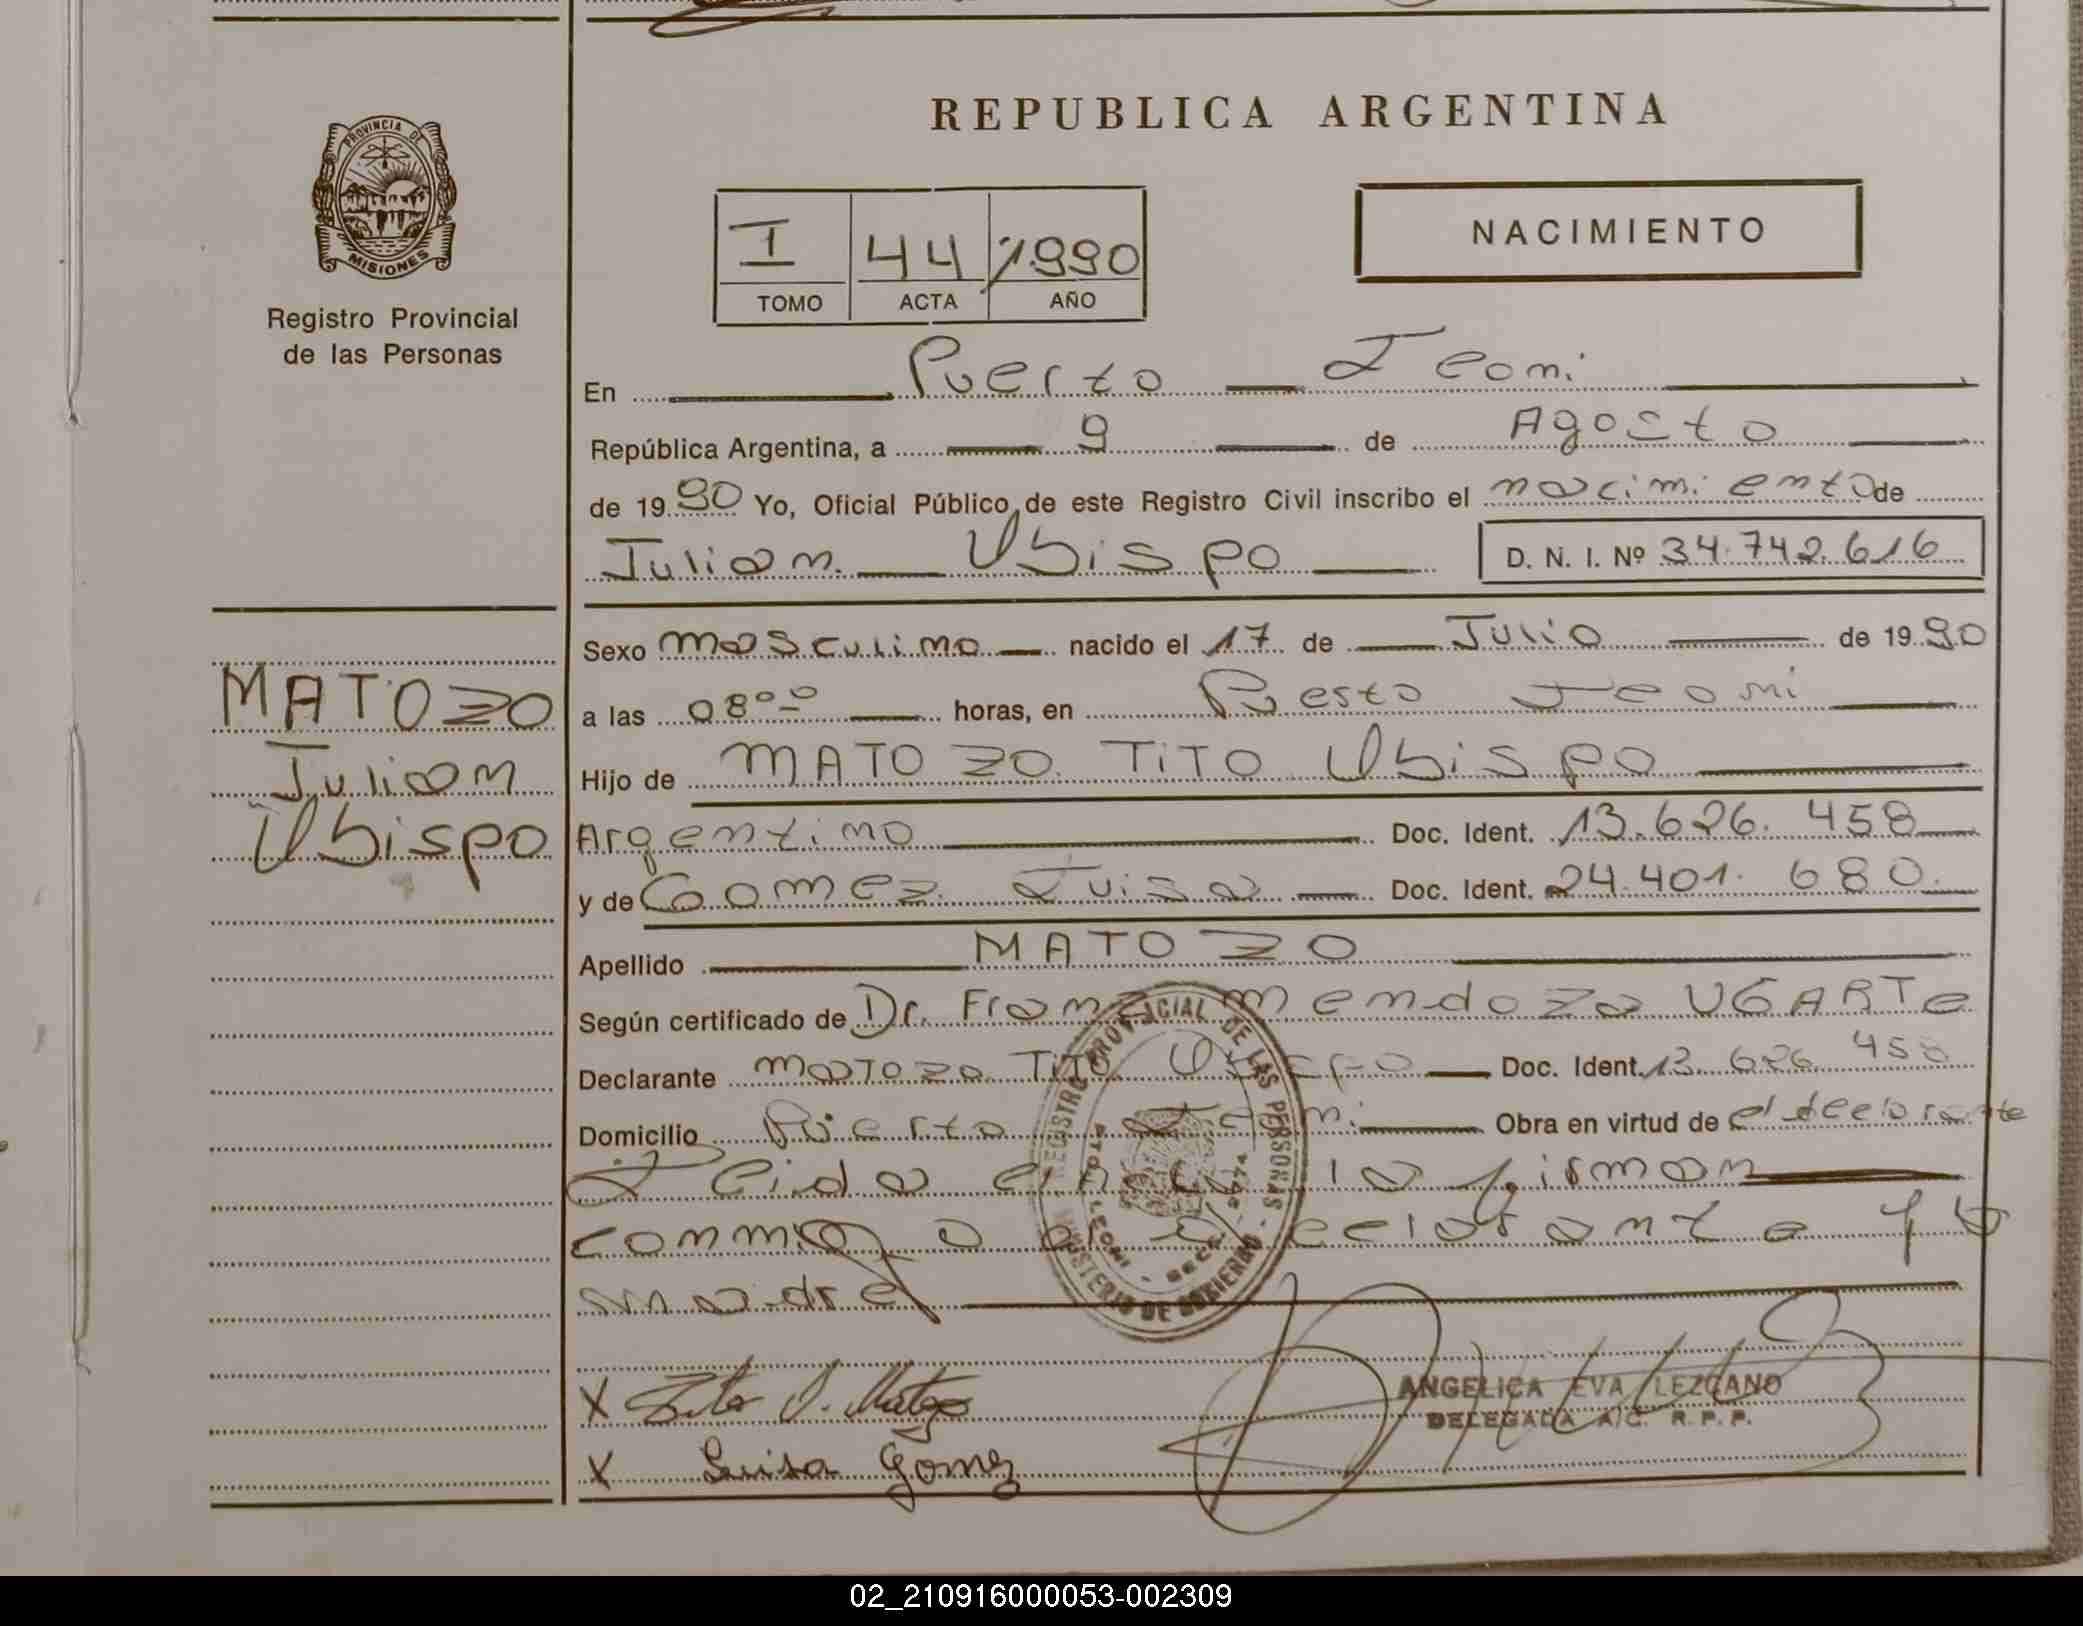 REPUBLICA ARGENTINA
PROVINCIA DE
MISIONES
Registro Provincial
de las Personas
I 44 1990
TOMO ACTA AÑO
NACIMIENTO
En Puerto Leoni
República Argentina, a 9 de Agosto
de 1990 Yo, Oficial Público de este Registro Civil inscribo el nacimiento de
Julian Ubispo D. N. I. Nº 34.742.616
MATOZO
Julian
Ubispo
Sexo masculino nacido el 17 de Julio de 1990
a las 08⁰⁰ horas, en Puesto Leoni
Hijo de MATOZO TITO Ubispo
Argentino Doc. Ident. 13.626.458
y de Gomez Luisa Doc. Ident. 24.401.680
Apellido MATOZO
Según certificado de Dr. Franz mendoza UGARTe
Declarante matozo TiTo Ubispo Doc. Ident. 13.626.458
Domicilio Puerto Leoni Obra en virtud de el declarante
Leida el acta la firman
conmigo el declarante y la
madre
REGISTRO PROVINCIAL DE LAS PERSONAS
MINISTERIO DE GOBIERNO
PTO. LEONI
X Tito U. Matozo
X Luisa Gomez
ANGELICA EVA LEZCANO
DELEGADA A/C. R. P. P.
02_210916000053-002309